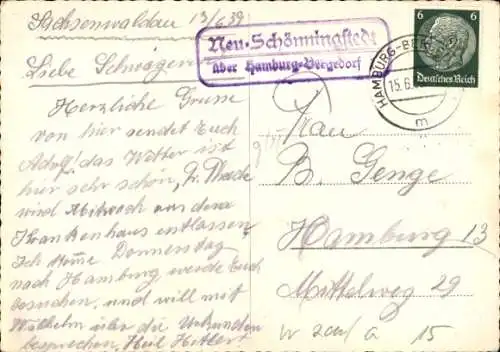 Sachsenwaldau 13/6 39
Liebe Schwägerin
Herzliche Grüsse
von hier sendet Euch
Adolf! das Wetter ist
hier sehr schön, Fr.
wird Mittwoch aus dem
Krankenhaus entlassen
Ich komme Donnerstag
nach Hamburg werde Euch
besuchen, und will mit
Wilhelm über die Urkunden
besprechen, Heil Hitler!
Neu-Schönningstedt
über Hamburg-Bergedorf
HAMBURG-BERGEDORF
15.6.
m
6 6
Deutsches Reich
Frau
B. Genge
Hamburg 13
Mittelweg 29
15